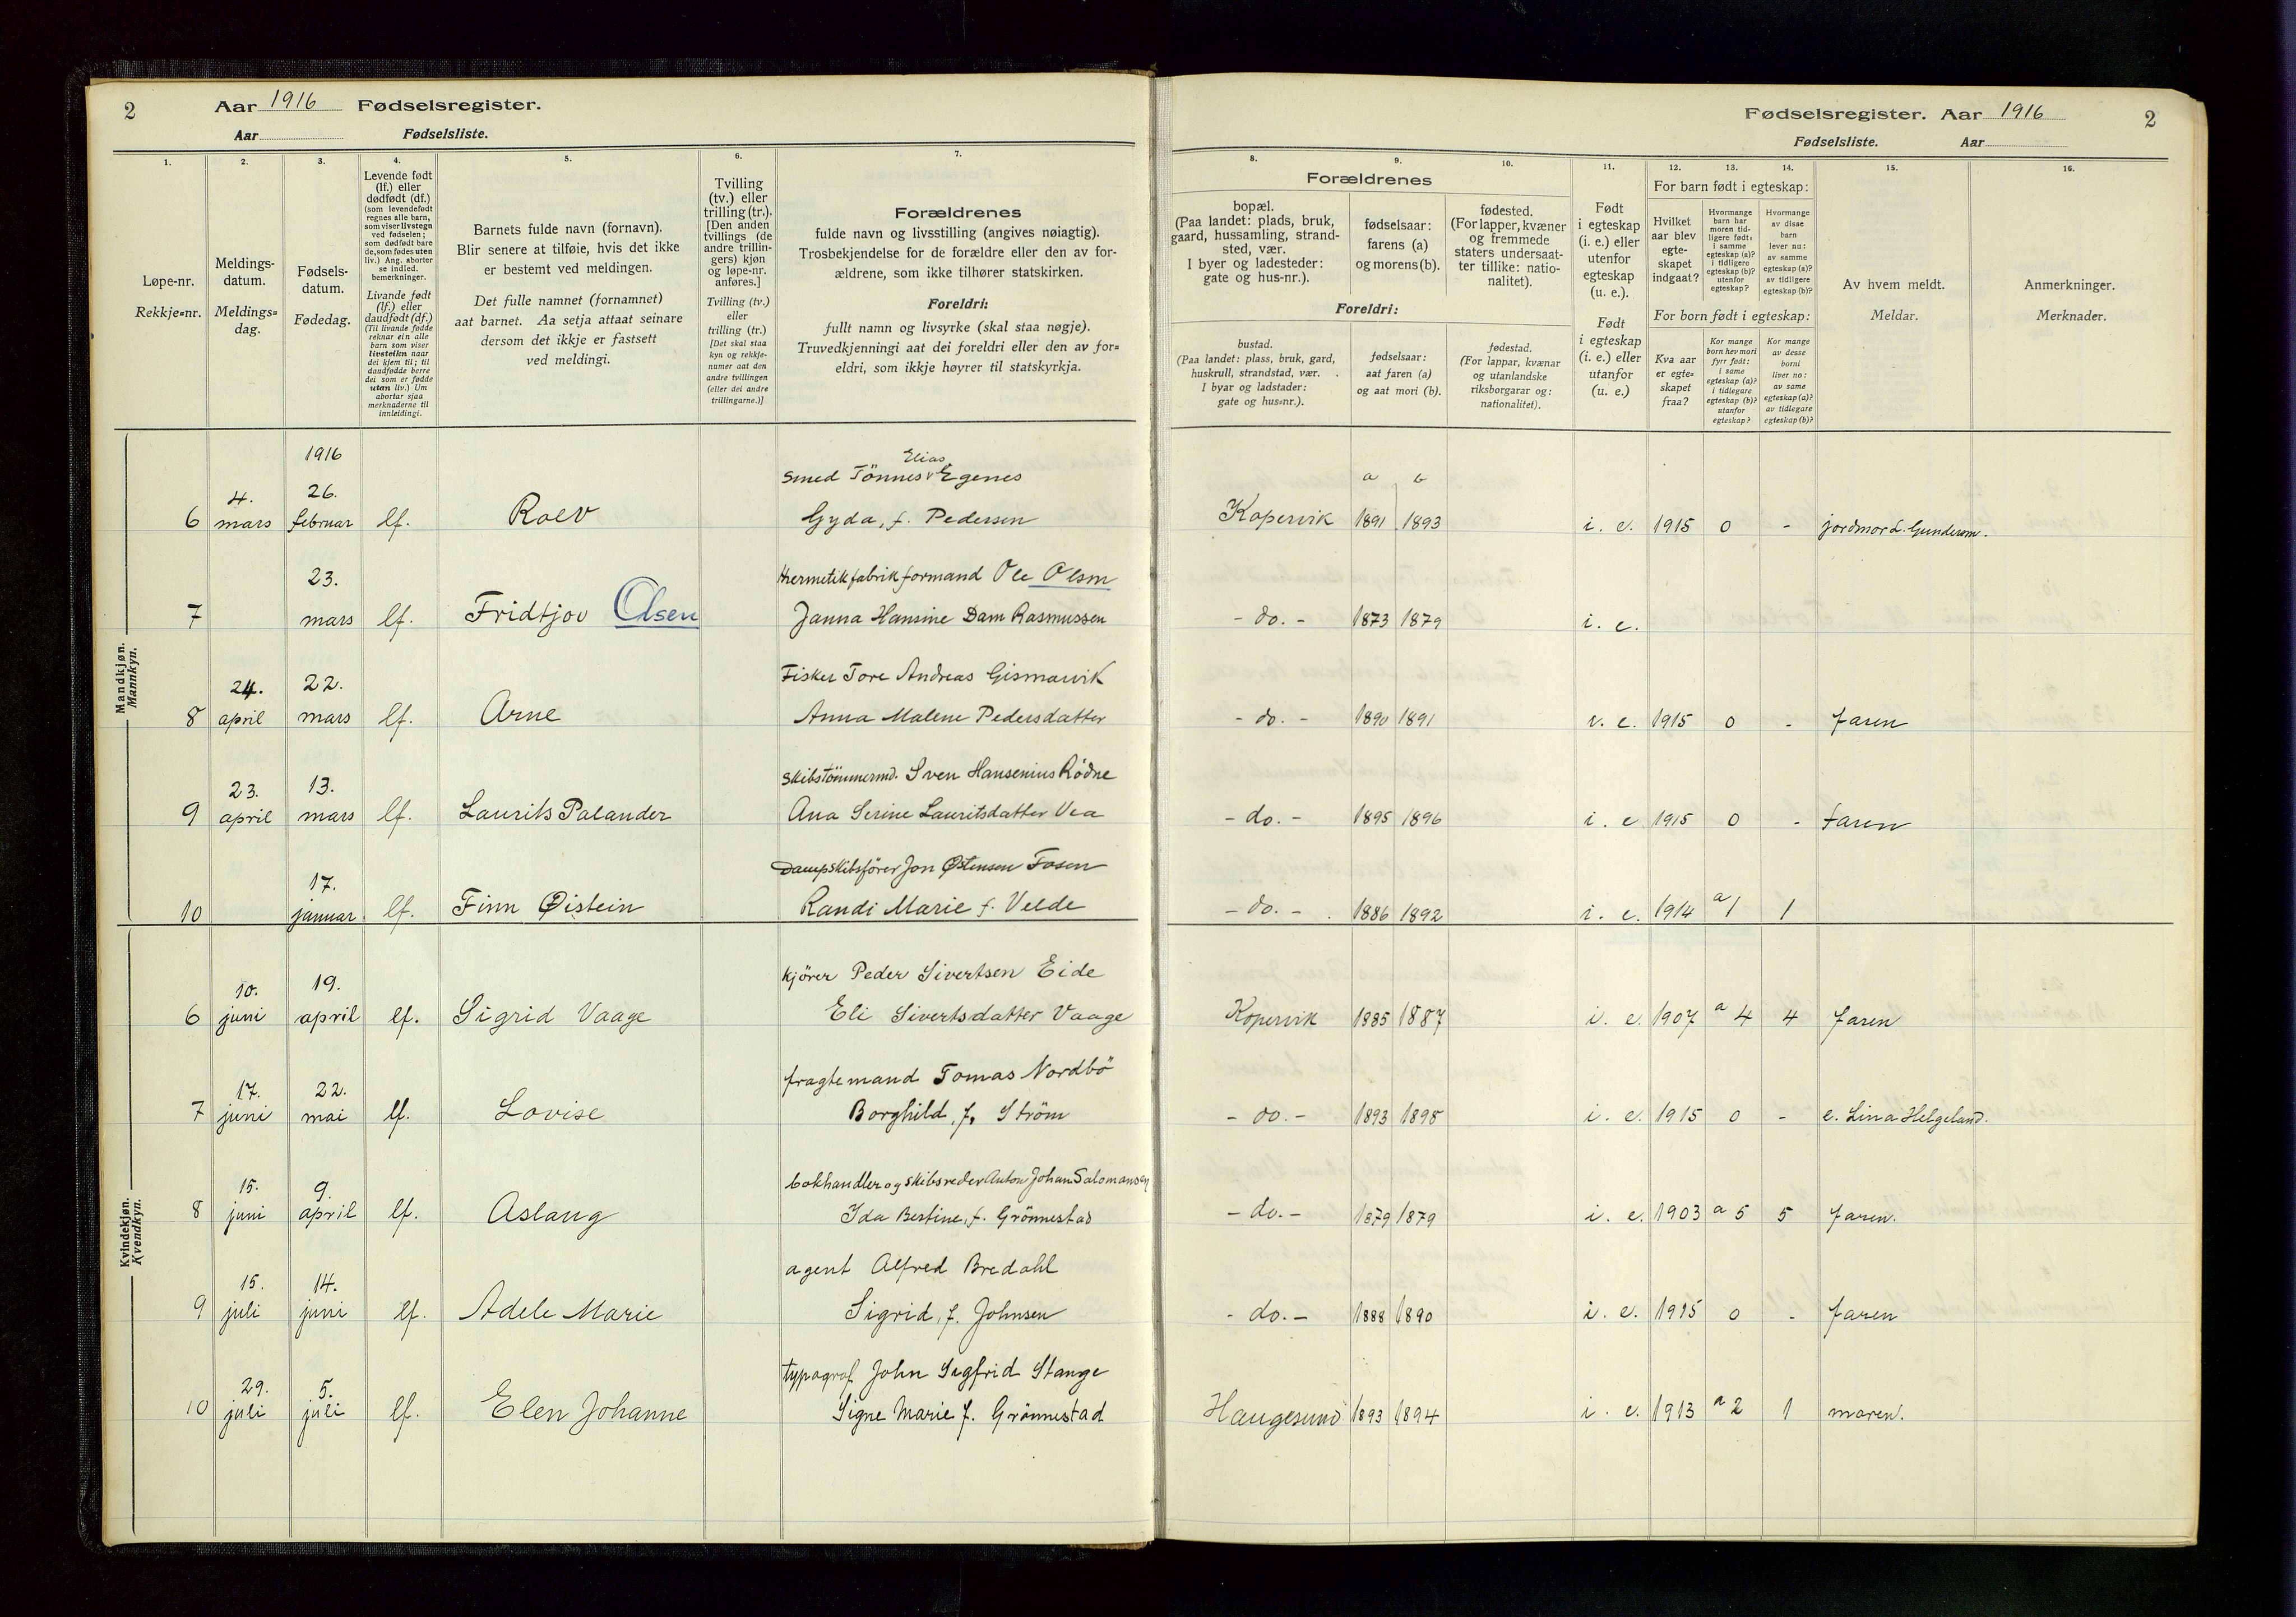 2
Aar 1916 Fødselsregister.
Aar Fødselsliste.
Fødselsregister. Aar 1916
2
Fødselsliste. Aar
1. 2. 3. 4. 5. 6. 7.
Løpe-nr.
Rekkje=nr.
Meldings-
datum.
Meldings=
dag.
Fødsels-
datum.
Fødedag.
Levende født
(lf.) eller
dødfødt (df.)
(som levendefødt
regnes alle barn,
som viser livstegn
ved fødselen;
som dødfødt bare
de, som fødes uten
liv.) Ang. aborter
se indled.
bemerkninger.
Livande født
(lf.) eller
daudfødt (df.)
(Til livande fødde
reknar ein alle
barn som viser
livsteikn naar
dei kjem til; til
daudfødde berre
dei som er fødde
utan liv.) Um
abortar sjaa
merknaderne til
innleidingi.
Barnets fulde navn (fornavn).
Blir senere at tilføie, hvis det ikke
er bestemt ved meldingen.
Det fulle namnet (fornamnet)
aat barnet. Aa setja attaat seinare
dersom det ikkje er fastsett
ved meldingi.
Tvilling
(tv.) eller
trilling (tr.).
[Den anden
tvillings (de
andre trillin-
gers) kjøn
og løpe-nr.
anføres.]
Tvilling (tv.)
eller
trilling (tr.)
[Det skal staa
kyn og rekkje-
numer aat den
andre tvillingen
(eller dei andre
trillingarne.)]
Forældrenes
fulde navn og livsstilling (angives nøiagtig).
Trosbekjendelse for de forældre eller den av for-
ældrene, som ikke tilhører statskirken.
Foreldri:
fullt namn og livsyrke (skal staa nøgje).
Truvedkjenningi aat dei foreldri eller den av for=
eldri, som ikkje høyrer til statskyrkja.
8. 9. 10. 11. 12. 13. 14. 15. 16.
Forældrenes
bopæl.
(Paa landet: plads, bruk,
gaard, hussamling, strand-
sted, vær.
I byer og ladesteder:
gate og hus-nr.).
fødselsaar:
farens (a)
og morens (b).
fødested.
(For lapper, kvæner
og fremmede
staters undersaat-
ter tillike: natio-
nalitet).
Foreldri:
bustad.
(Paa landet: plass, bruk, gard,
huskrull, strandstad, vær.
I byar og ladstader:
gate og hus=nr.).
fødselsaar:
aat faren (a)
og aat mori (b).
fødestad.
(For lappar, kvænar
og utanlandske
riksborgarar og:
nationalitet).
Født
i egteskap
(i. e.) eller
utenfor
egteskap
(u. e.).
Født
i egteskap
(i. e.) eller
utanfor
(u. e.)
For barn født i egteskap:
Hvilket
aar blev
egte-
skapet
indgaat?
Hvormange
barn har
moren tid-
ligere født:
i samme
egteskap (a)?
i tidligere
egteskap (b)?
utenfor
egteskap?
Hvormange
av disse
barn
lever nu:
av samme
egteskap (a)?
av tidligere
egteskap (b)?
For born født i egteskap:
Kva aar
er egte=
skapet
fraa?
Kor mange
born hev mori
fyrr født:
i same
egteskap (a)?
i tidlegare
egteskap (b)?
utanfor
egteskap?
Kor mange
av desse
borni
liver no:
av same
egteskap (a)?
av tidlegare
egteskap (b)?
Av hvem meldt.
Meldar.
Anmerkninger.
Merknader.
Mandkjøn.
Mannkyn.
1916
26. Elias
4. smed Tönnes Egenes a b
6 mars februar lf. Rolv Gyda, f. Pedersen Kopervik 1891 1893 i. e. 1915 0 - jordmor L. Gundersen.
23. Hermetikfabrikformand Ole Olsen
7 mars lf. Fridtjov Olsen Janna Hansine Dam Rasmussen - do. - 1873 1879 i. e.
24. 22. Fisker Tore Andreas Gismarvik
8 april mars lf. Arne Anna Malene Pedersdatter - do. - 1890 1891 i. e. 1915 0 - faren
23. 13. Skibstömmermd. Sven Hansenius Rödne
9 april mars lf. Laurits Palander Ana Serine Lauritsdatter Vea - do. - 1895 1896 i. e. 1915 0 - faren
17. Dampskibsförer Jon Østensen Fosen
10 januar lf. Finn Øistein Randi Marie f. Velde - do. - 1886 1892 i. e. 1914 a 1 1
Kvindekjøn.
Kvendkyn.
10. 19. kjörer Peder Sivertsen Eide
6 juni april lf. Sigrid Vaage Eli Sivertsdatter Vaage Kopervik 1885 1887 i. e. 1907 a 4 4 faren
17. 22. fragtemand Tomas Nordbö
7 juni mai lf. Lovise Borghild, f. Ström - do. - 1893 1898 i. e. 1915 0 - e. Lina Helgeland.
15. 9. bokhandler og skibsreder Anton Johan Salomonsen
8 juni april lf. Aslaug Ida Bertine, f. Grönnestad - do. - 1879 1879 i. e. 1903 a 5 5 faren.
15. 14. agent Alfred Bredahl
9 juli juni lf. Adele Marie Sigrid, f. Johnsen - do. - 1888 1890 i. e. 1915 0 - faren
29. 5. typograf John Sigfrid Stange
10 juli juli lf. Elen Johanne Signe Marie f. Grönnestad Haugesund 1893 1894 i. e. 1913 a 2 1 moren.